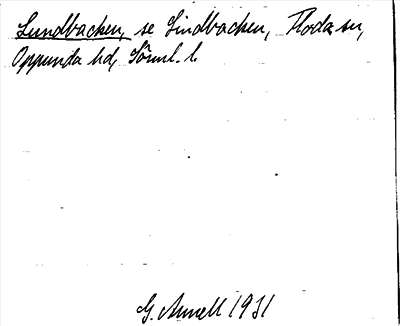 Lundbacken, se Lindbacken, Floda sn,
Oppunda hd, Sörml. l.
G. Annell 1931